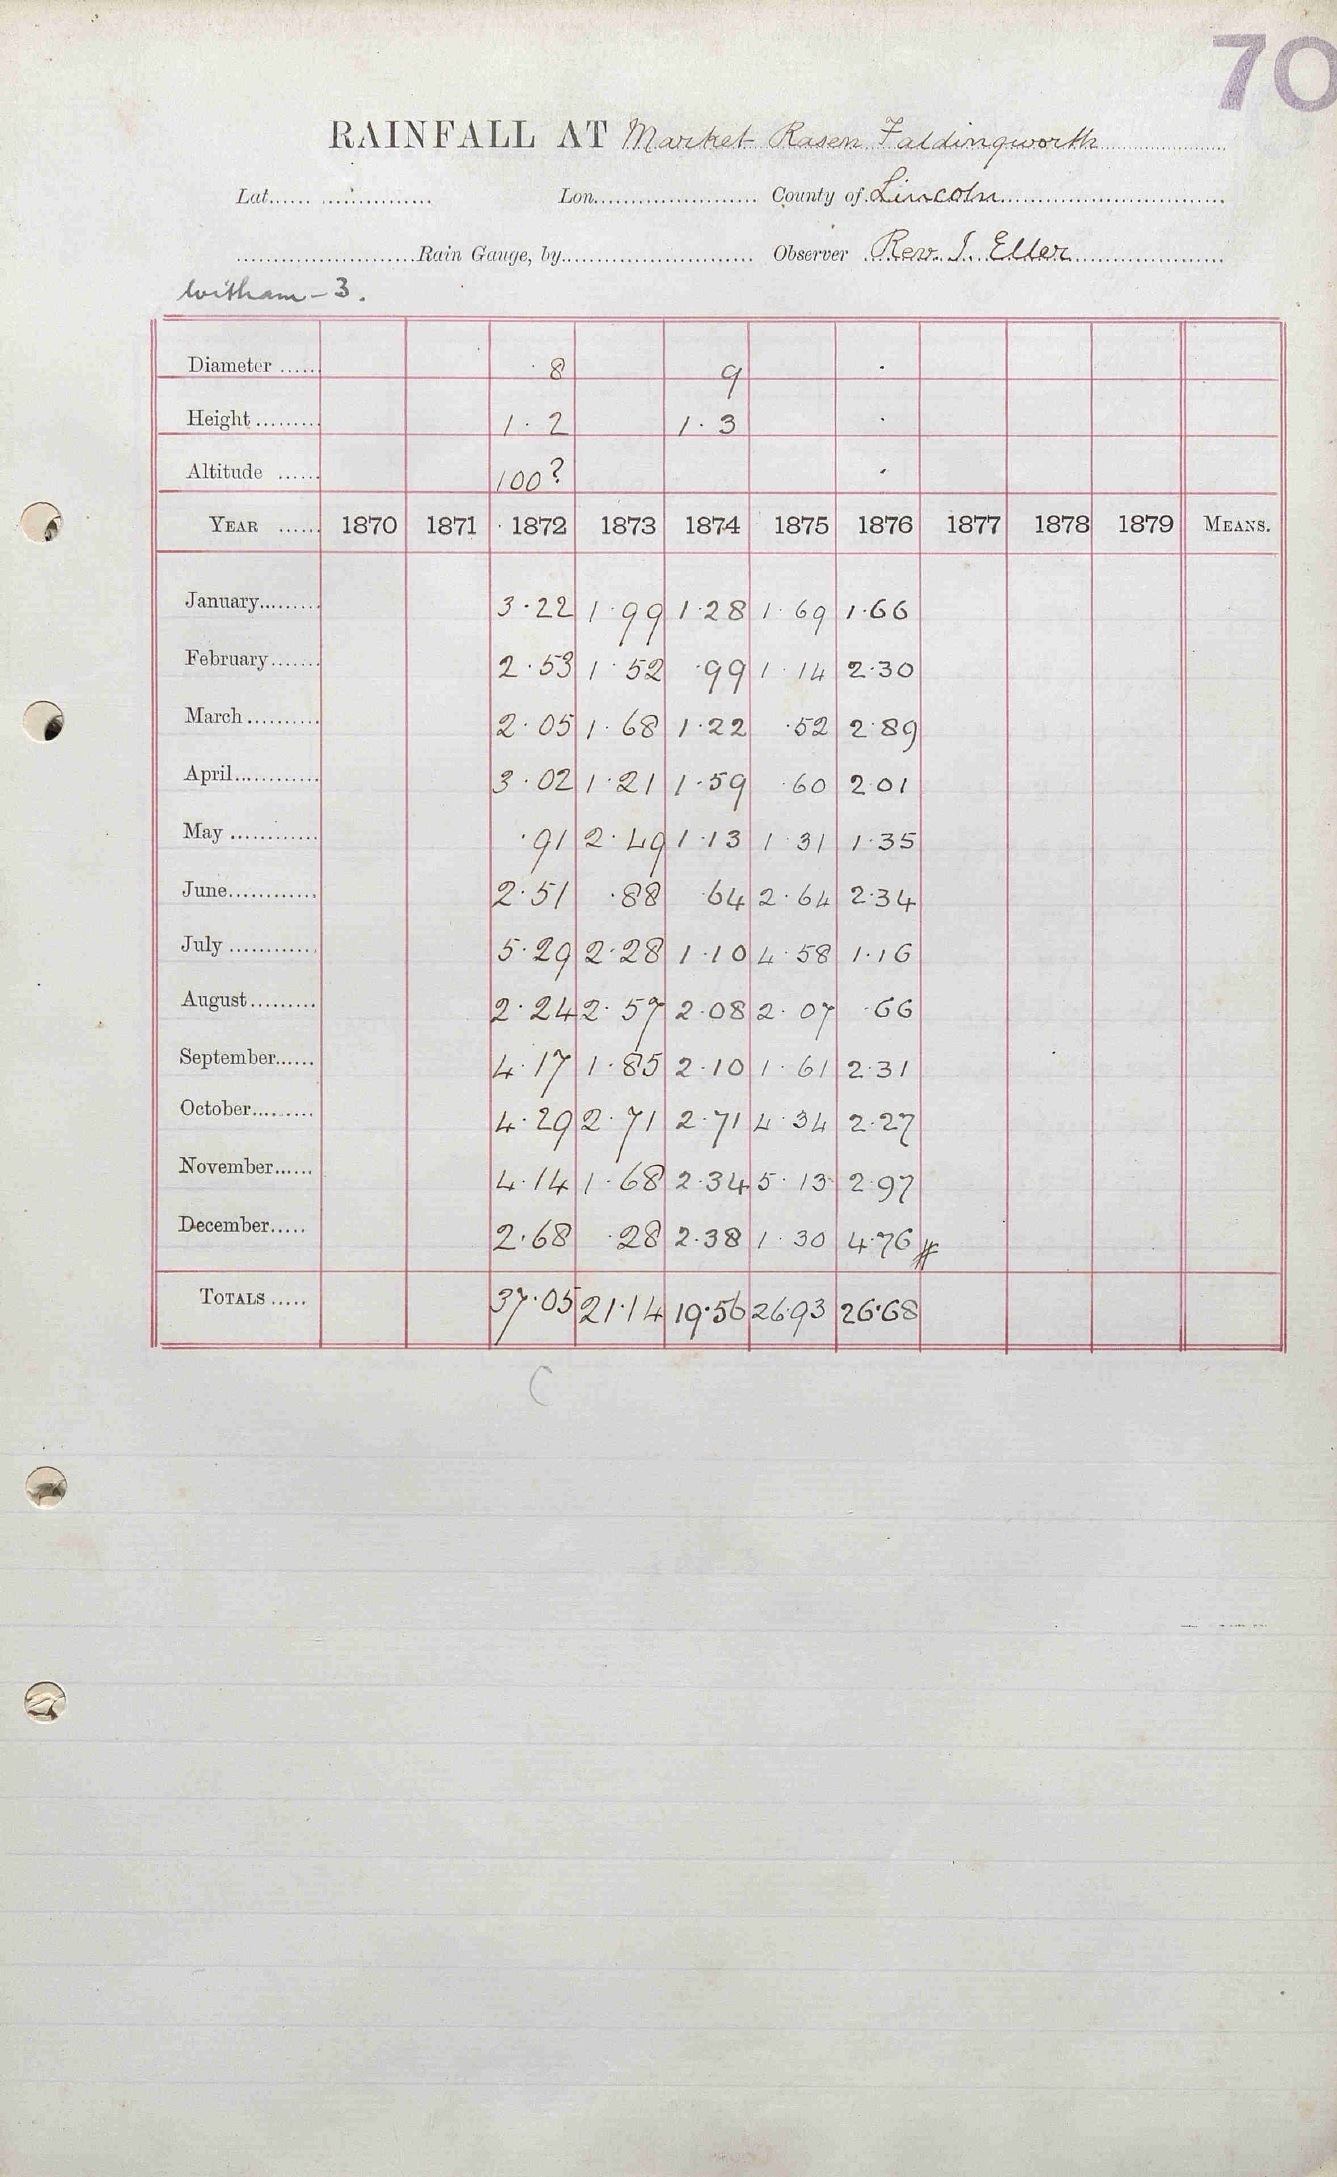 70
RAINFALL AT Market Rasen Faldingworth
Lat. Lon. County of Lincoln
Rain Gauge, by Observer Rev. I. Eller
Witham - 3.
Diameter 8 9
Height 1.2 1.3
Altitude 100?
YEAR 1870 1871 1872 1873 1874 1875 1876 1877 1878 1879 MEANS.
January 3.22 1.99 1.28 1.69 1.66
February 2.53 1.52 .99 1.14 2.30
March 2.05 1.68 1.22 .52 2.89
April 3.02 1.21 1.59 .60 2.01
May .91 2.49 1.13 1.31 1.35
June 2.51 .88 .64 2.64 2.34
July 5.29 2.28 1.10 4.58 1.16
August 2.24 2.57 2.08 2.07 .66
September 4.17 1.85 2.10 1.61 2.31
October 4.29 2.71 2.71 4.34 2.27
November 4.14 1.68 2.34 5.13 2.97
December 2.68 .28 2.38 1.30 4.76 #
TOTALS 37.05 21.14 19.56 26.93 26.68
C